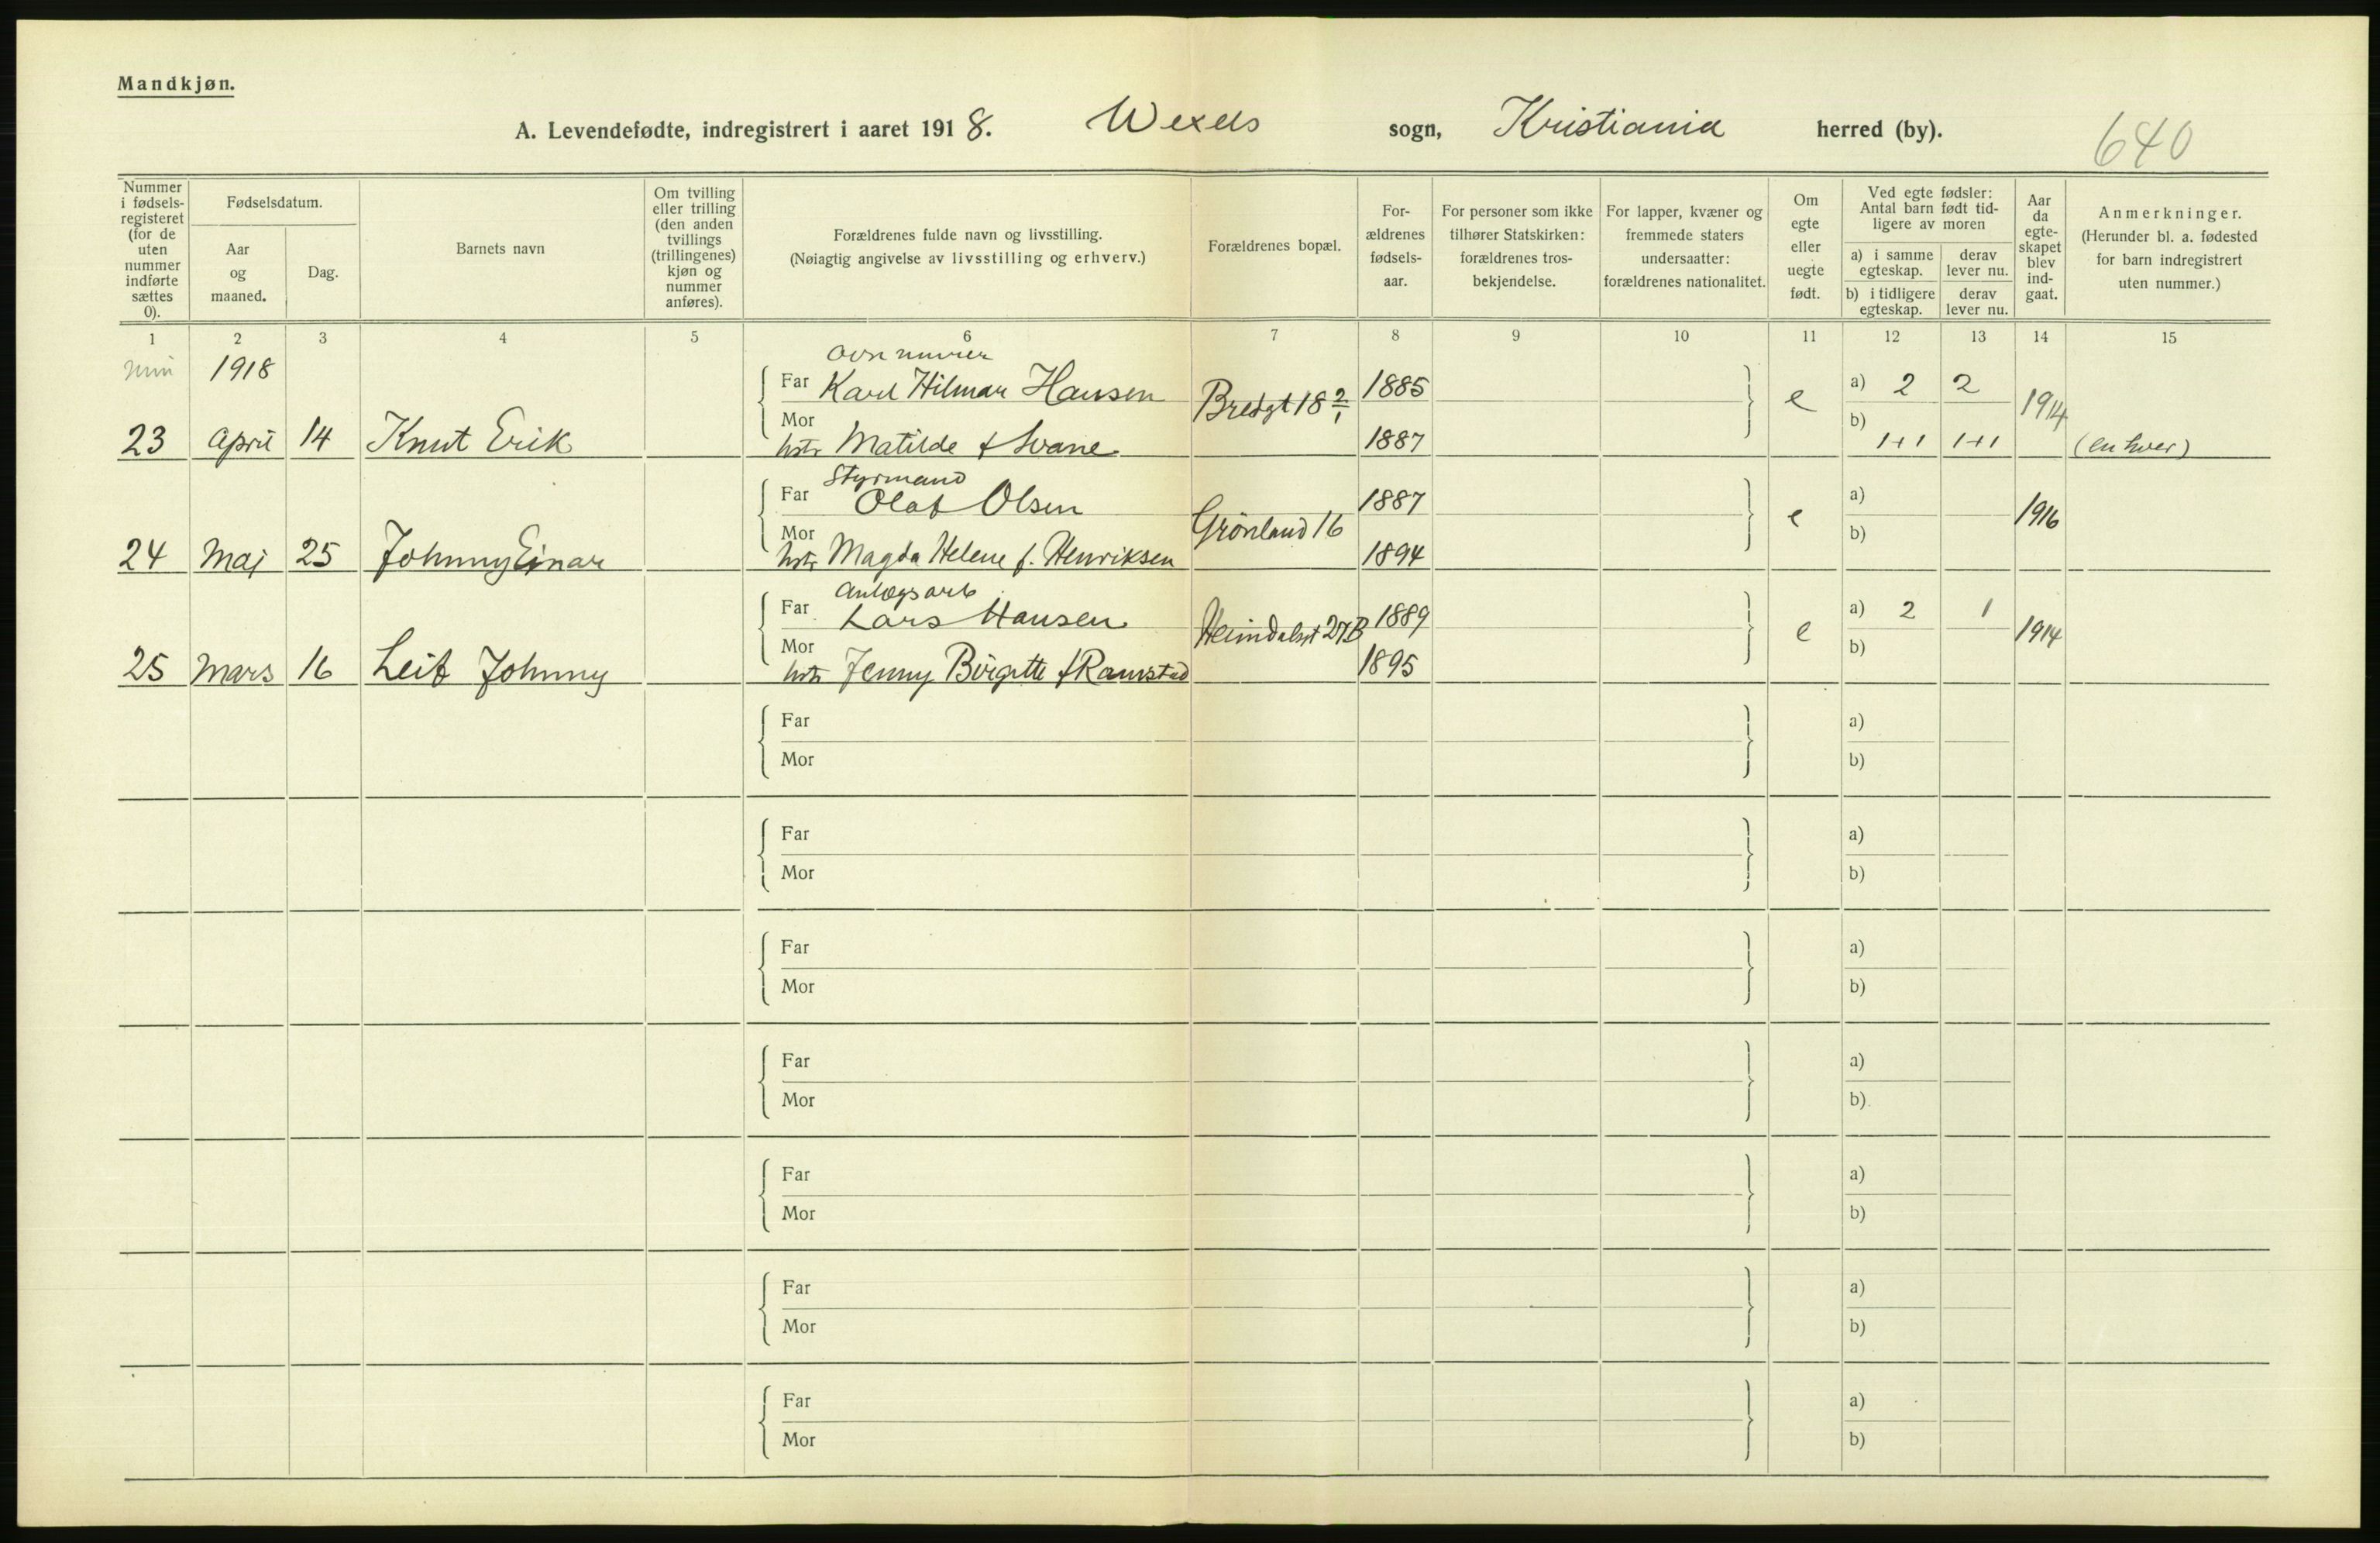 Mandkjøn.
A. Levendefødte, indregistrert i aaret 1918. Wexels sogn, Kristiania herred (by). 640
Nummer i fødsels-registeret (for de uten nummer indførte sættes 0).
Fødselsdatum.
Aar og maaned.
Dag.
Barnets navn
Om tvilling eller trilling (den anden tvillings (trillingenes) kjøn og nummer anføres).
Forældrenes fulde navn og livsstilling.
(Nøiagtig angivelse av livsstilling og erhverv.)
Forældrenes bopæl.
For-ældrenes fødsels-aar.
For personer som ikke tilhører Statskirken: forældrenes tros-bekjendelse.
For lapper, kvæner og fremmede staters undersaatter: forældrenes nationalitet.
Om egte eller uegte født.
Ved egte fødsler: Antal barn født tid-ligere av moren
a) i samme egteskap.
derav lever nu.
b) i tidligere egteskap.
derav lever nu.
Aar da egte-skapet blev ind-gaat.
Anmerkninger.
(Herunder bl. a. fødested for barn indregistrert uten nummer.)
1 2 3 4 5 6 7 8 9 10 11 12 13 14 15
1918
Far Karl Hilmar Hansen Bredgt 18 2/1 1885 e a) 2 2 1914
Mor b)
23 April 14 Knut Erik hstr Matilde f Svane 1887 1+1 1+1 (en hver)
Styrmand
Far Olaf Olsen Grönland 16 1887 e a) 1916
Mor b)
24 Maj 25 Johnny Einar hstr Magda Helene f. Henriksen 1894
Anlægsarb
Far Lars Hansen Heimdalsgt 27B 1889 e a) 2 1 1914
Mor b)
25 Mars 16 Leif Johnny hstr Jenny Birgitte f Ramstad 1895
Far a)
Mor b)
Far a)
Mor b)
Far a)
Mor b)
Far a)
Mor b)
Far a)
Mor b)
Far a)
Mor b)
Far a)
Mor b)